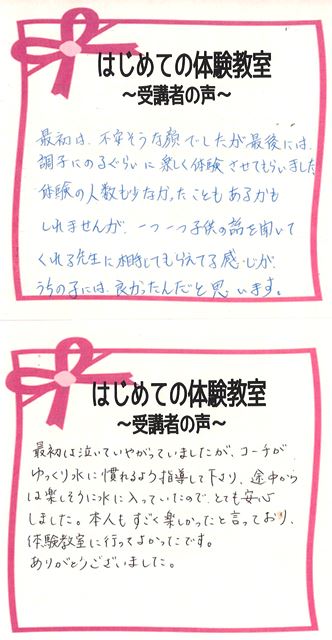 はじめての体験教室
～受講者の声～
最初は、不安そうな顔でしたが最後には、
調子にのるぐらいに楽しく体験させてもらいました
体験の人数も少なかったこともあるかも
しれませんが、一つ一つ子供の話を聞いて
くれる先生に相手してもらえてる感じが、
うちの子には、良かったんだと思います。
はじめての体験教室
～受講者の声～
最初は泣いていやがっていましたが、コーチが
ゆっくり水に慣れるよう指導して下さり、途中から
は楽しそうに水に入っていたので、とても安心
しました。本人もすごく楽しかったと言っており、
体験教室に行ってよかったです。
ありがとうございました。